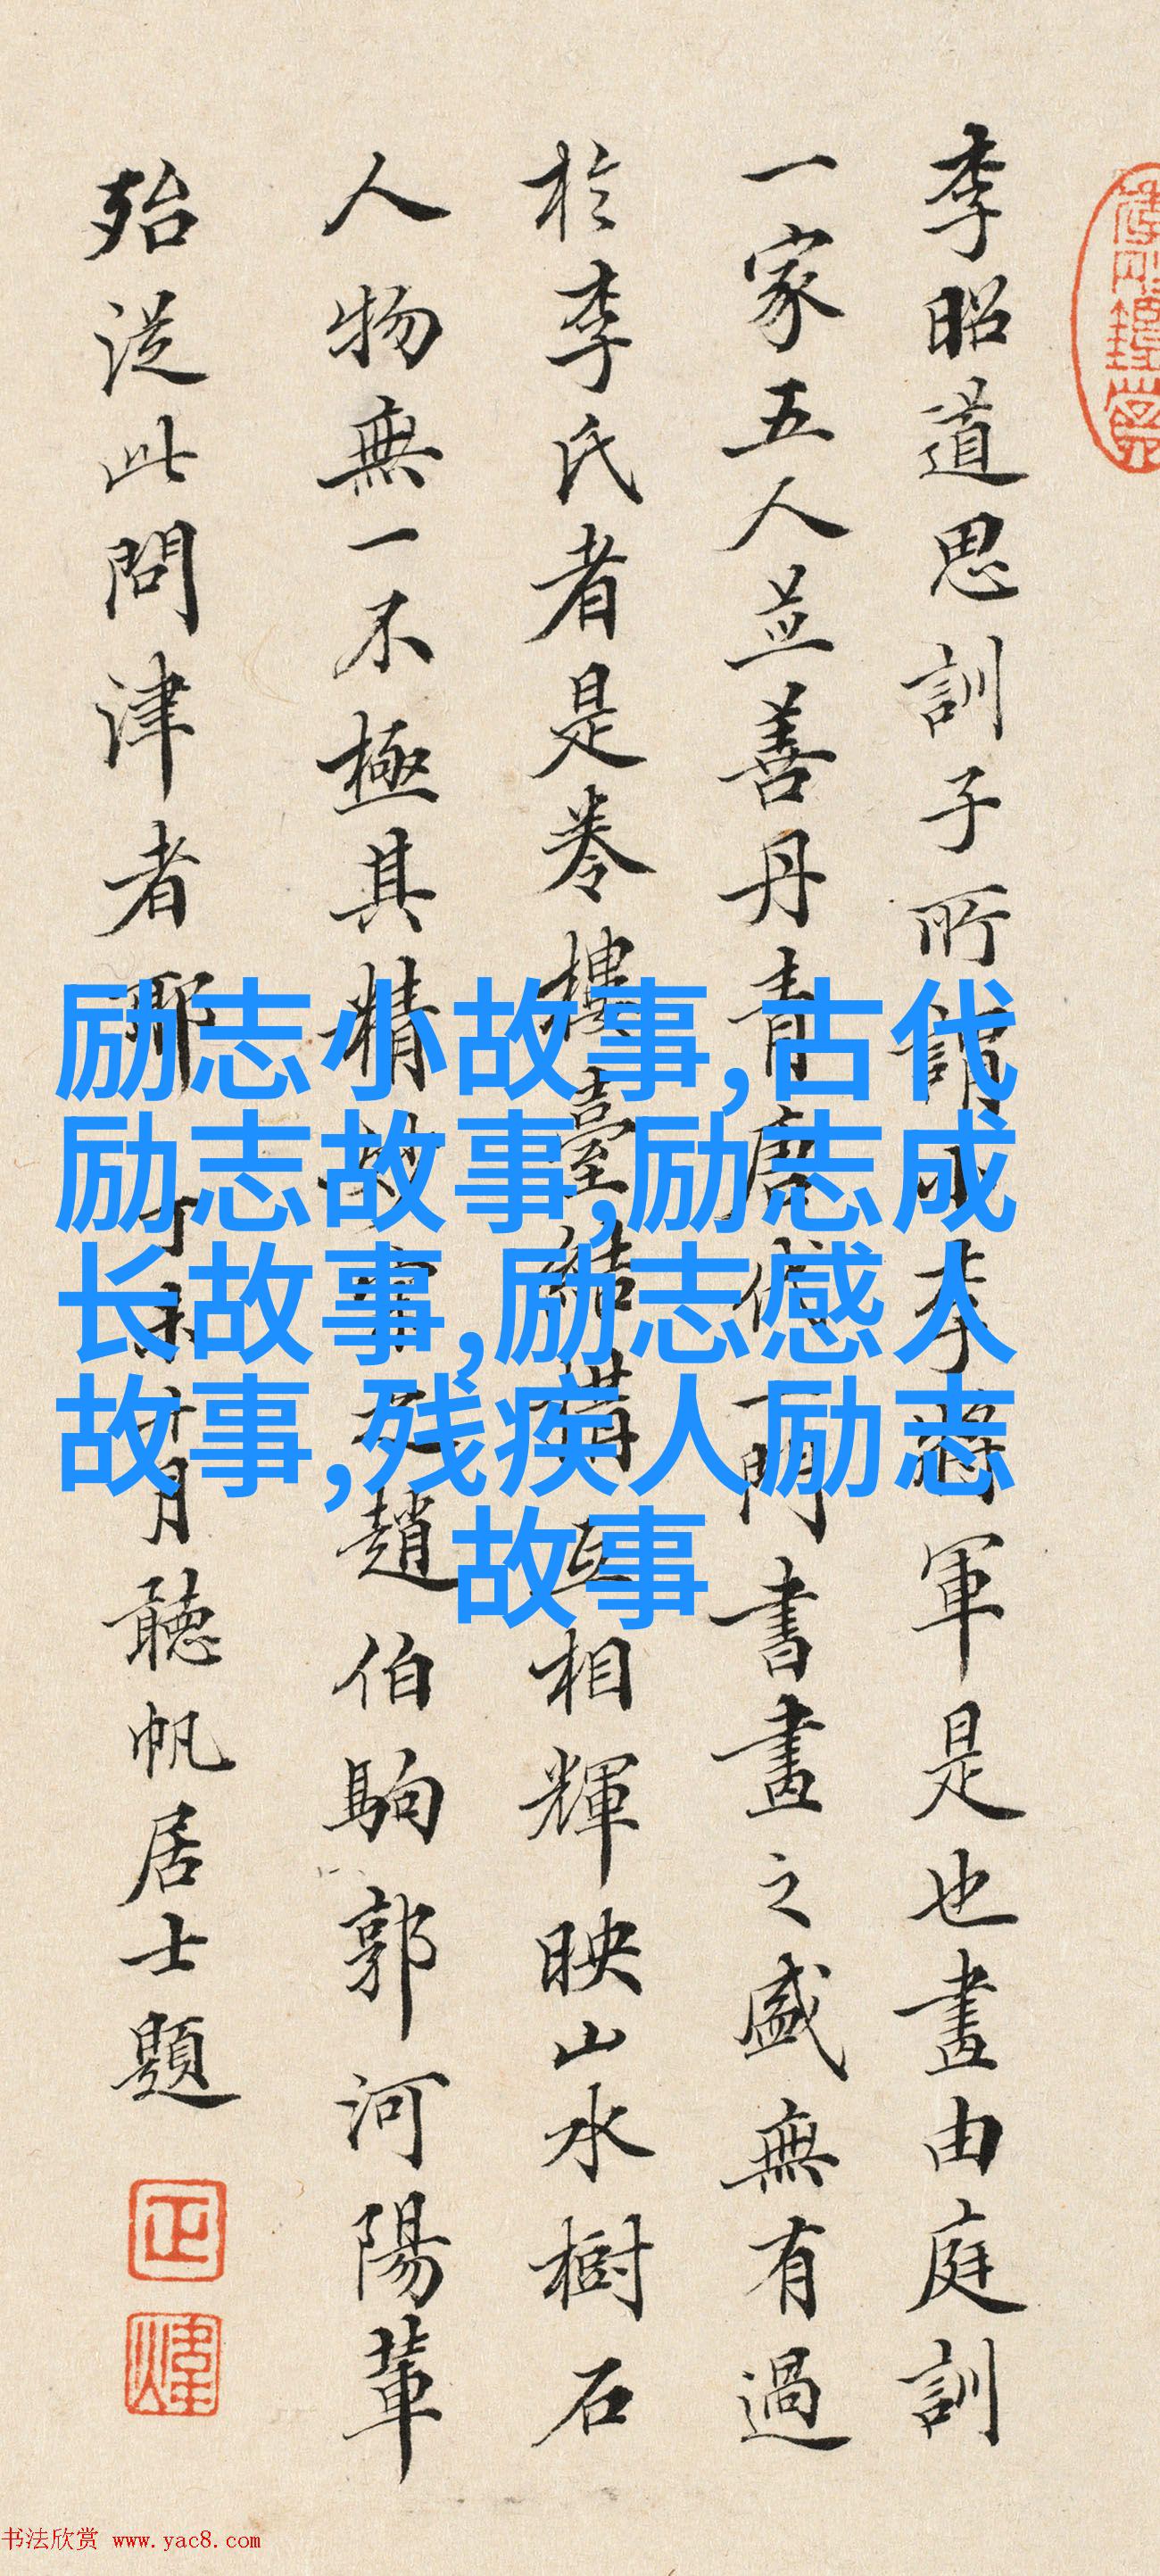 李昭道思訓子所謂小李將軍是也畫由庭訓
一家五人並善丹青唐代一門書畫之盛無有過
於李氏者是卷樓臺結構互相輝映山水樹石
人物無一不極其精妙宋之趙伯駒郭河陽輩
殆從此問津者耶丁未十月聽帆居士題
励志小故事,古代
励志故事,励志成
长故事,励志感人
故事,残疾人励志
故事
书法欣赏 www.yac8.com